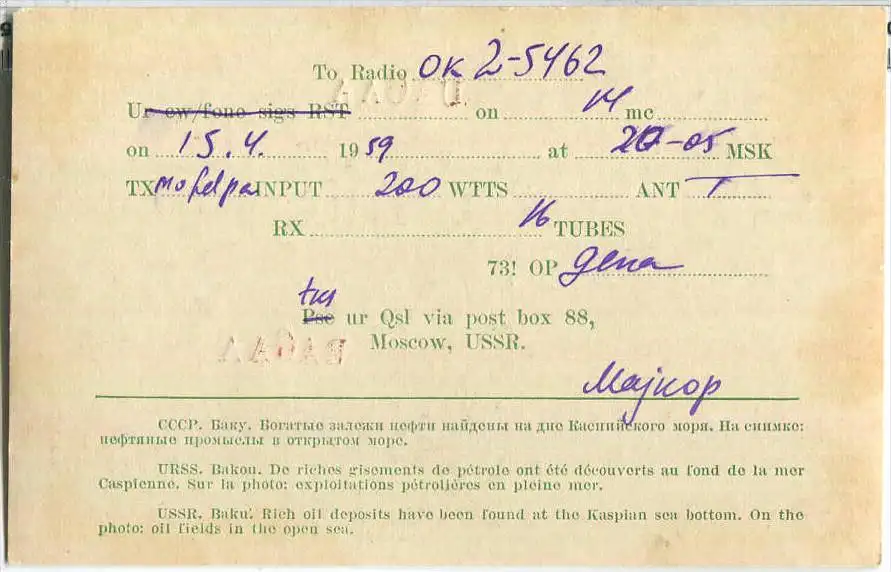 To Radio OK 2-5462
Ur cw/fone sigs RST on 14 mc
on 15.4. 1959 at 20-05 MSK
TX INPUT 200 WTTS ANT T
RX 16 TUBES
73! OP Gena
tks
Pse ur Qsl via post box 88,
Moscow, USSR.
СССР. Баку. Богатые залежи нефти найдены на дне Каспийского моря. На снимке:
нефтяные промыслы в открытом море.
URSS. Bakou. De riches gisements de pétrole ont été découverts au fond de la mer
Caspienne. Sur la photo: exploitations pétrolières en pleine mer.
USSR. Baku. Rich oil deposits have been found at the Kaspian sea bottom. On the
photo: oil fields in the open sea.